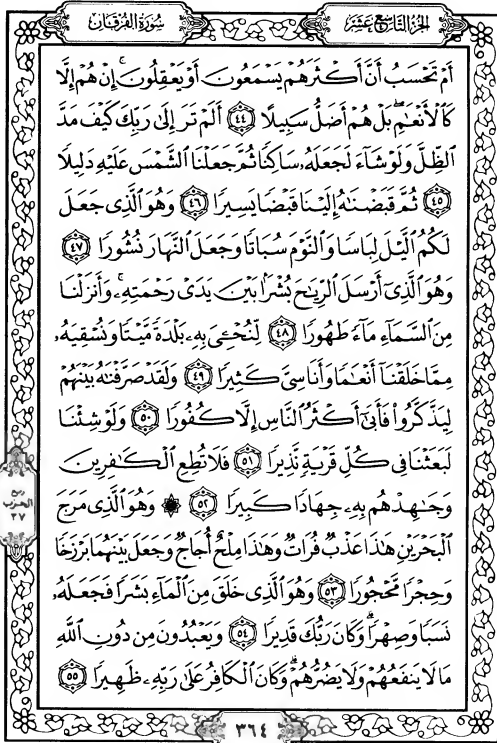 سُورَةُ الْفُرْقَانِ الجُزْءُ التَّاسِعَ عَشَرَ
أَمْ تَحْسَبُ أَنَّ أَكْثَرَهُمْ يَسْمَعُونَ أَوْ يَعْقِلُونَ ۚ إِنْ هُمْ إِلَّا
كَالْأَنْعَٰمِ ۖ بَلْ هُمْ أَضَلُّ سَبِيلًا ٤٤ أَلَمْ تَرَ إِلَىٰ رَبِّكَ كَيْفَ مَدَّ
الظِّلَّ وَلَوْ شَآءَ لَجَعَلَهُۥ سَاكِنًا ثُمَّ جَعَلْنَا الشَّمْسَ عَلَيْهِ دَلِيلًا
٤٥ ثُمَّ قَبَضْنَٰهُ إِلَيْنَا قَبْضًا يَسِيرًا ٤٦ وَهُوَ الَّذِى جَعَلَ
لَكُمُ الَّيْلَ لِبَاسًا وَالنَّوْمَ سُبَاتًا وَجَعَلَ النَّهَارَ نُشُورًا ٤٧
وَهُوَ الَّذِىٓ أَرْسَلَ الرِّيَٰحَ بُشْرًۢا بَيْنَ يَدَىْ رَحْمَتِهِۦ ۚ وَأَنزَلْنَا
مِنَ السَّمَآءِ مَآءً طَهُورًا ٤٨ لِّنُحْـِۧىَ بِهِۦ بَلْدَةً مَّيْتًا وَنُسْقِيَهُۥ
مِمَّا خَلَقْنَآ أَنْعَٰمًا وَأَنَاسِىَّ كَثِيرًا ٤٩ وَلَقَدْ صَرَّفْنَٰهُ بَيْنَهُمْ
لِيَذَّكَّرُوا۟ فَأَبَىٰٓ أَكْثَرُ النَّاسِ إِلَّا كُفُورًا ٥٠ وَلَوْ شِئْنَا
لَبَعَثْنَا فِى كُلِّ قَرْيَةٍ نَّذِيرًا ٥١ فَلَا تُطِعِ الْكَٰفِرِينَ
وَجَٰهِدْهُم بِهِۦ جِهَادًا كَبِيرًا ٥٢ ۞ وَهُوَ الَّذِى مَرَجَ
الْبَحْرَيْنِ هَٰذَا عَذْبٌ فُرَاتٌ وَهَٰذَا مِلْحٌ أُجَاجٌ وَجَعَلَ بَيْنَهُمَا بَرْزَخًا
وَحِجْرًا مَّحْجُورًا ٥٣ وَهُوَ الَّذِى خَلَقَ مِنَ الْمَآءِ بَشَرًا فَجَعَلَهُۥ
نَسَبًا وَصِهْرًا ۗ وَكَانَ رَبُّكَ قَدِيرًا ٥٤ وَيَعْبُدُونَ مِن دُونِ اللَّهِ
مَا لَا يَنفَعُهُمْ وَلَا يَضُرُّهُمْ ۗ وَكَانَ الْكَافِرُ عَلَىٰ رَبِّهِۦ ظَهِيرًا ٥٥
ربع
الحزب
٣٧
٣٦٤